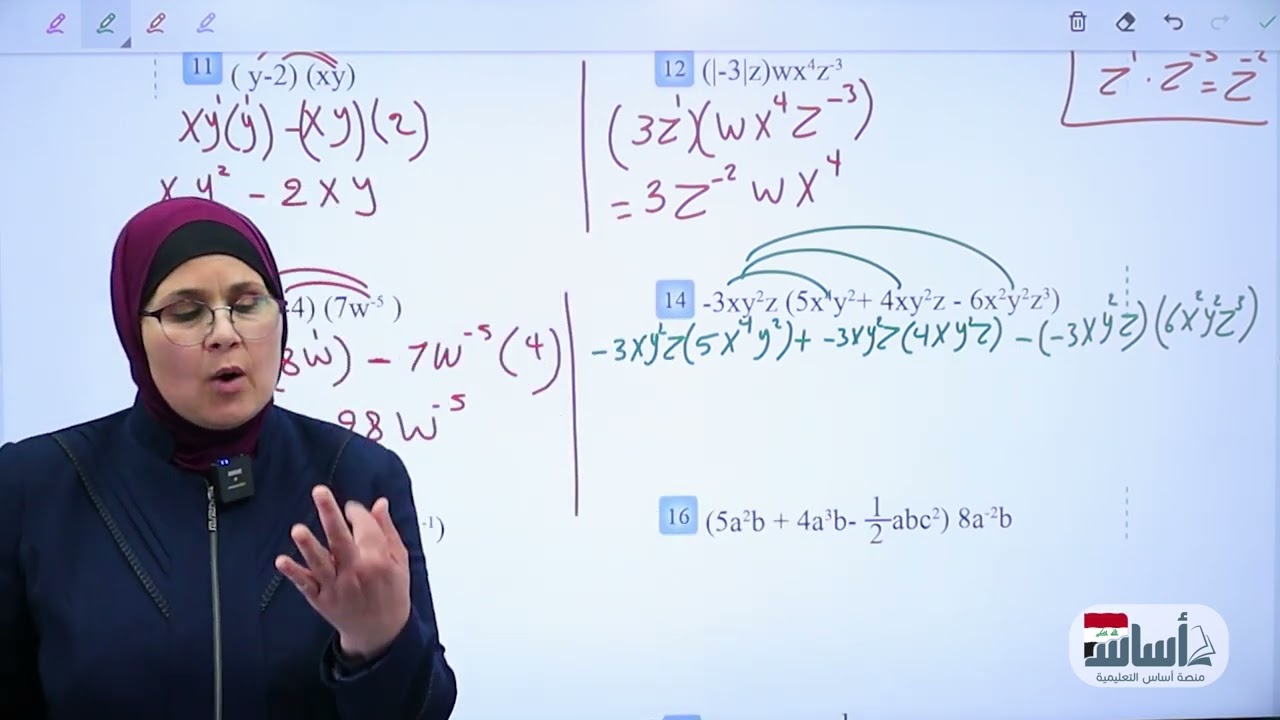 11 ( y-2) (xy)
xy¹(y¹) - (xy)(2)
xy² - 2xy
12 (|-3|z)wx⁴z⁻³
(3z¹)(wx⁴z⁻³)
= 3z⁻²wx⁴
z¹ · z⁻³ = z⁻²
4) (7w⁻⁵ )
8w¹) - 7w⁻⁵(4)
28w⁻⁵
14 -3xy²z (5x⁴y²+ 4xy²z - 6x²y²z³)
-3xy²z(5x⁴y²) + -3xy²z(4xy²z) - (-3xy²z)(6x²y²z³)
⁻¹)
16 (5a²b + 4a³b- 1/2 abc²) 8a⁻²b
أساس
منصة أساس التعليمية